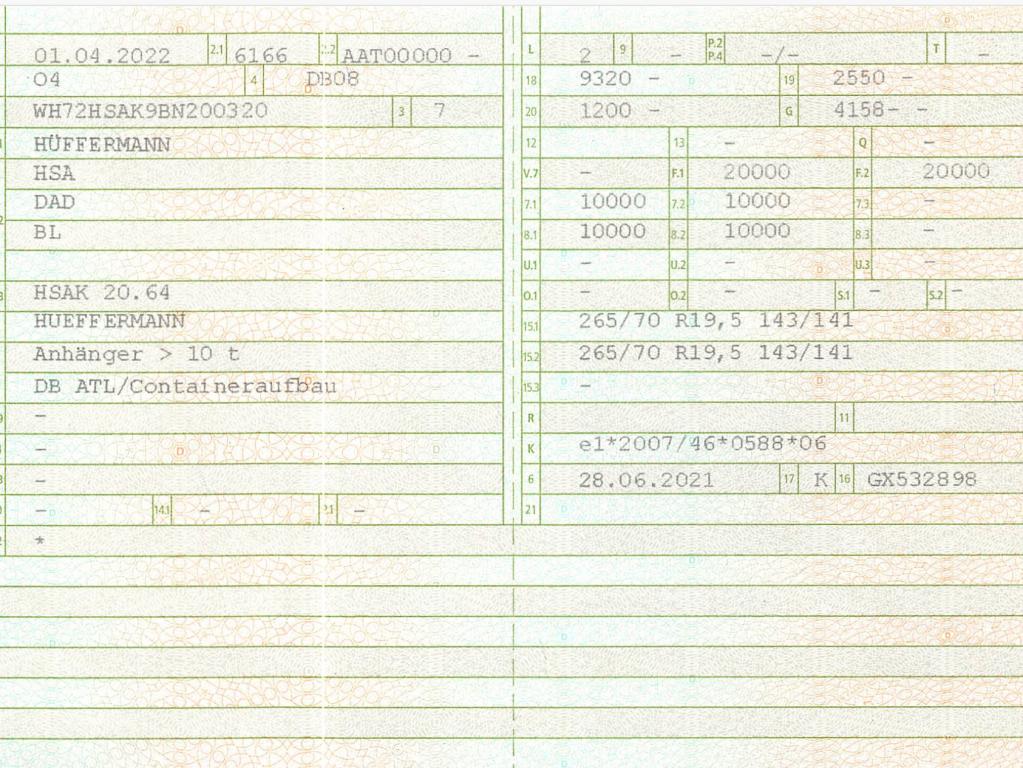 01.04.2022 2.1 6166 2.2 AAT00000 -
04 4 DB08
WH72HSAK9BN200320 3 7
HÜFFERMANN
HSA
DAD
BL
HSAK 20.64
HUEFFERMANN
Anhänger > 10 t
DB ATL/Containeraufbau
-
-
-
- 14.1 - P.1 -
*
L 2 9 - P.2 P.4 -/- T -
18 9320 - 19 2550 -
20 1200 - G 4158- -
12 13 - Q -
V.7 - F.1 20000 F.2 20000
7.1 10000 7.2 10000 7.3 -
8.1 10000 8.2 10000 8.3 -
U.1 - U.2 - U.3 -
O.1 - O.2 - S.1 - S.2 -
15.1 265/70 R19,5 143/141
15.2 265/70 R19,5 143/141
15.3 -
R 11
K e1*2007/46*0588*06
6 28.06.2021 17 K 16 GX532898
21